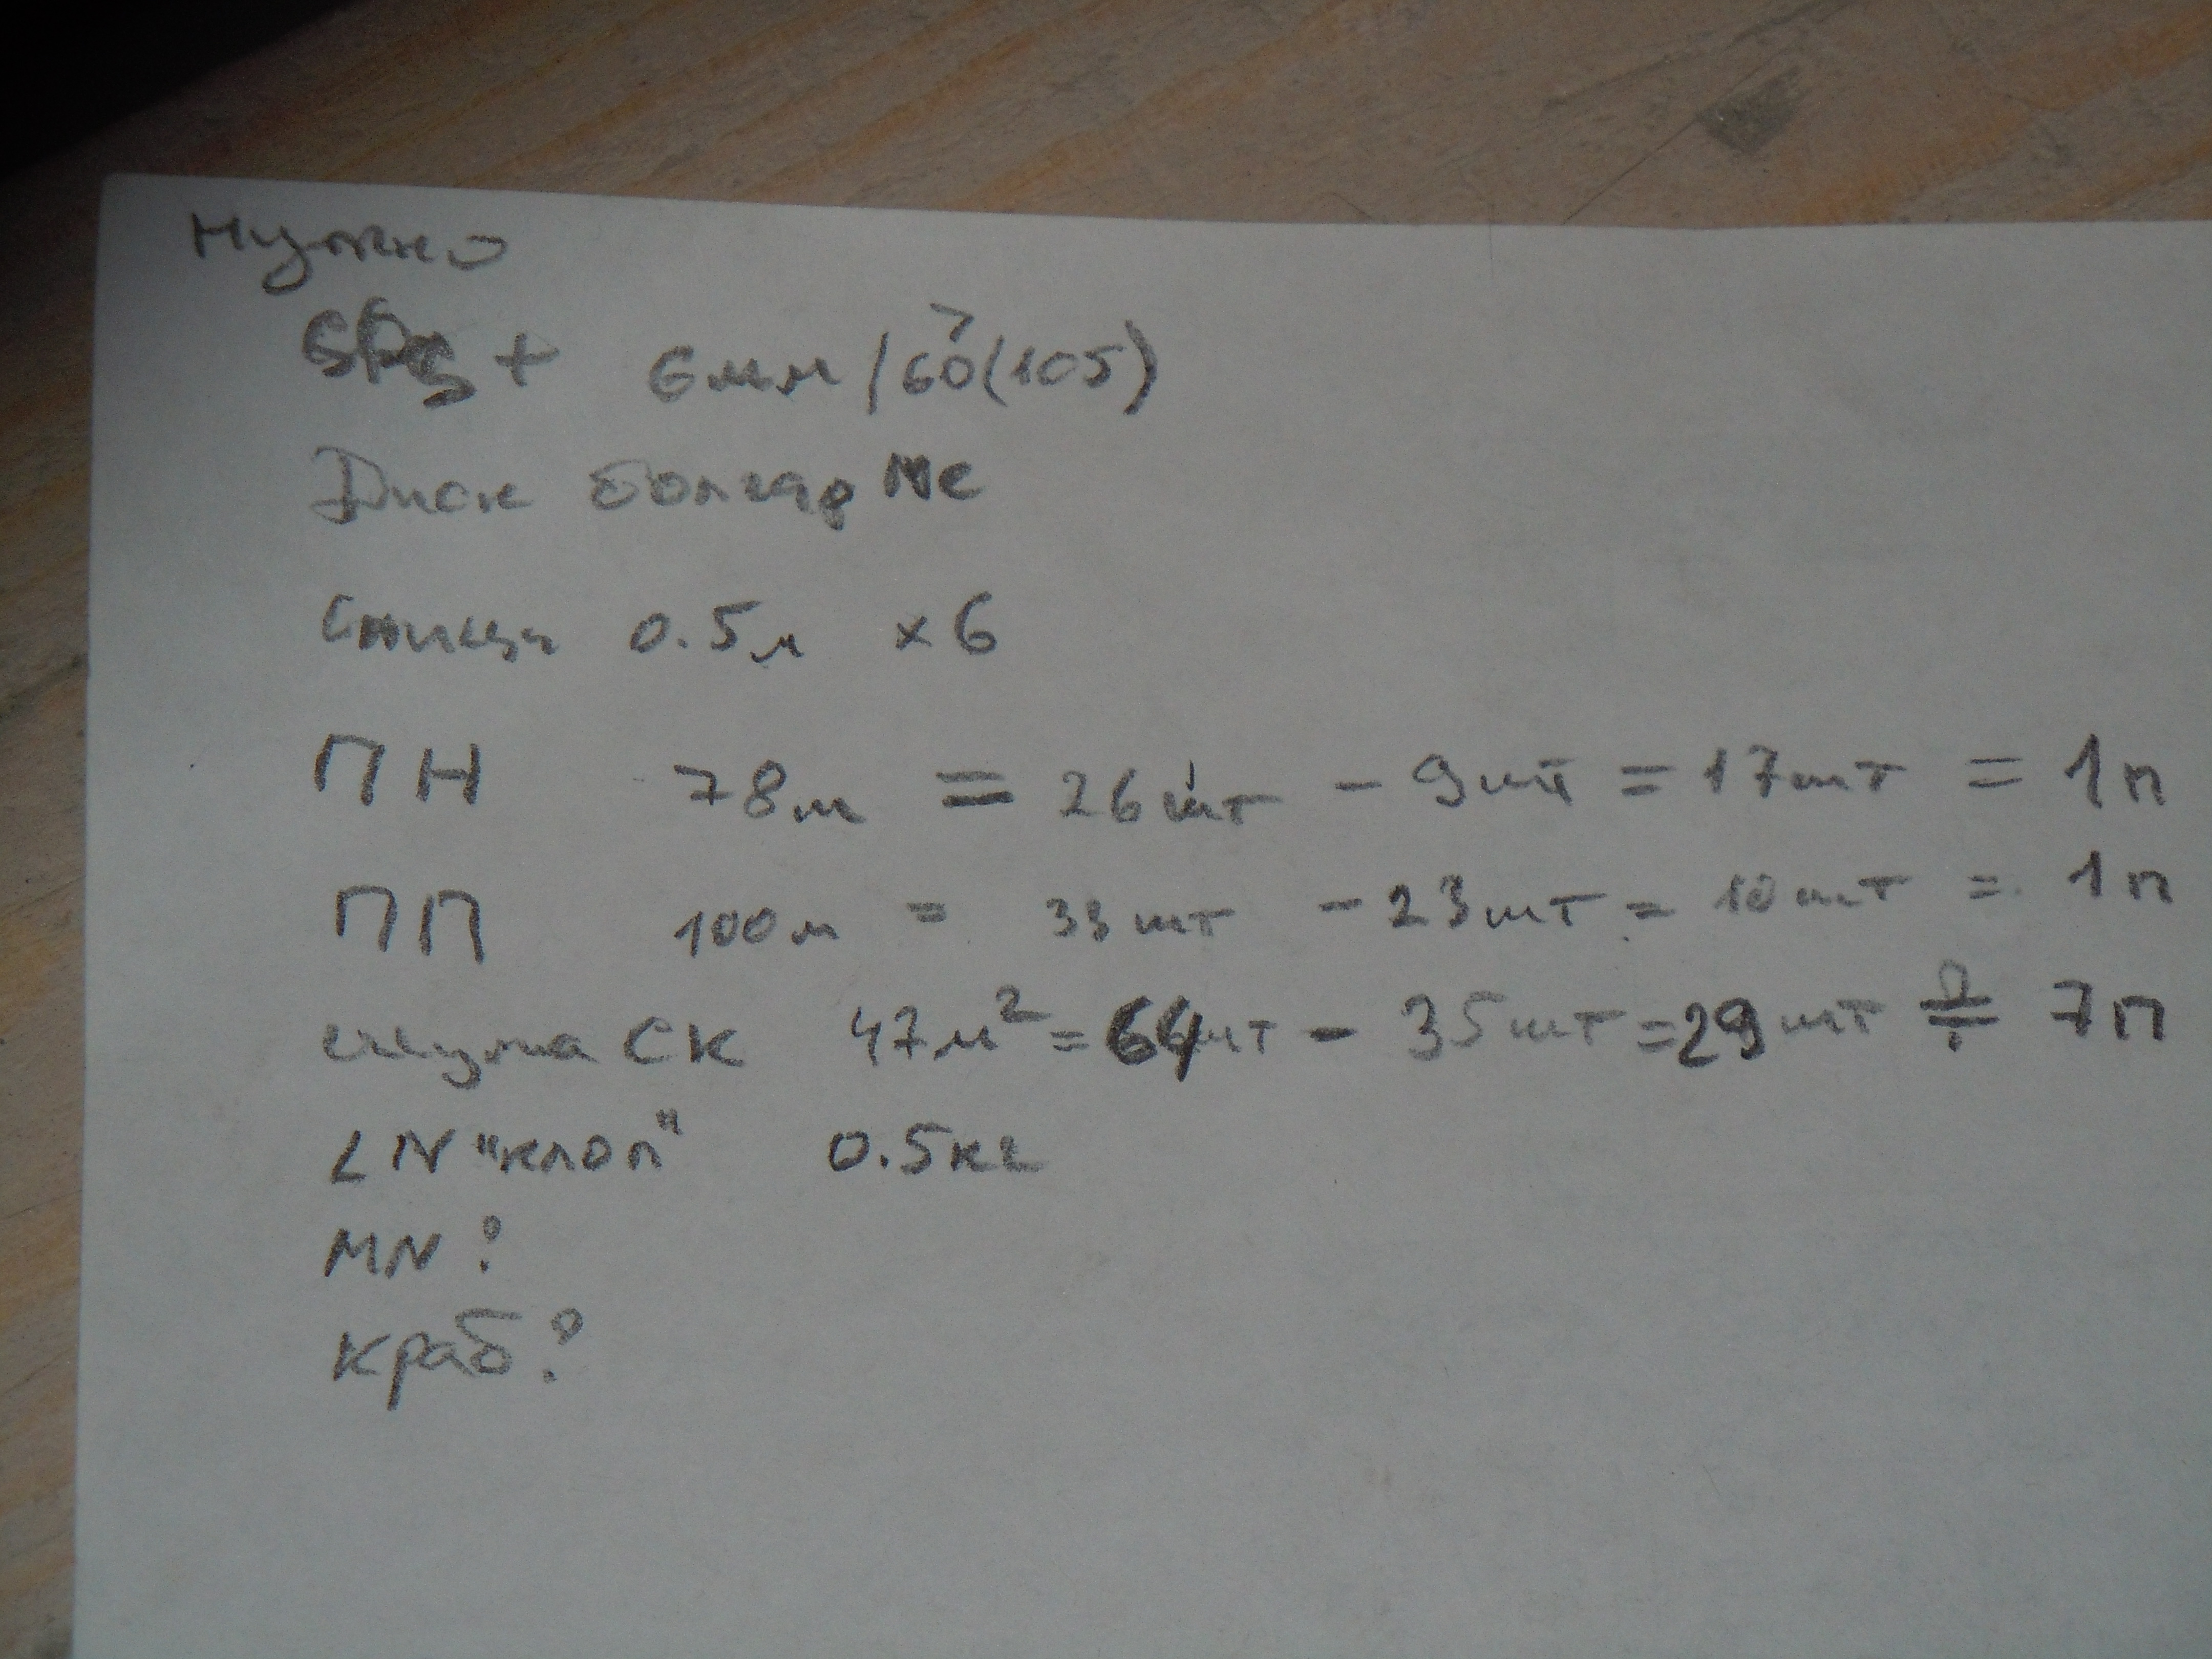 Нужно
SPS + 6мм / >60(105)
Диск болгар Ме
Спицы 0.5м × 6
ПН 78м = 26шт - 9шт = 17шт = 1п
ПП 100м = 33шт - 23шт = 10шт = 1п
СК 47м² = 64шт - 35шт = 29шт = 7п
LN "клоп" 0.5кг
MN ?
краб?